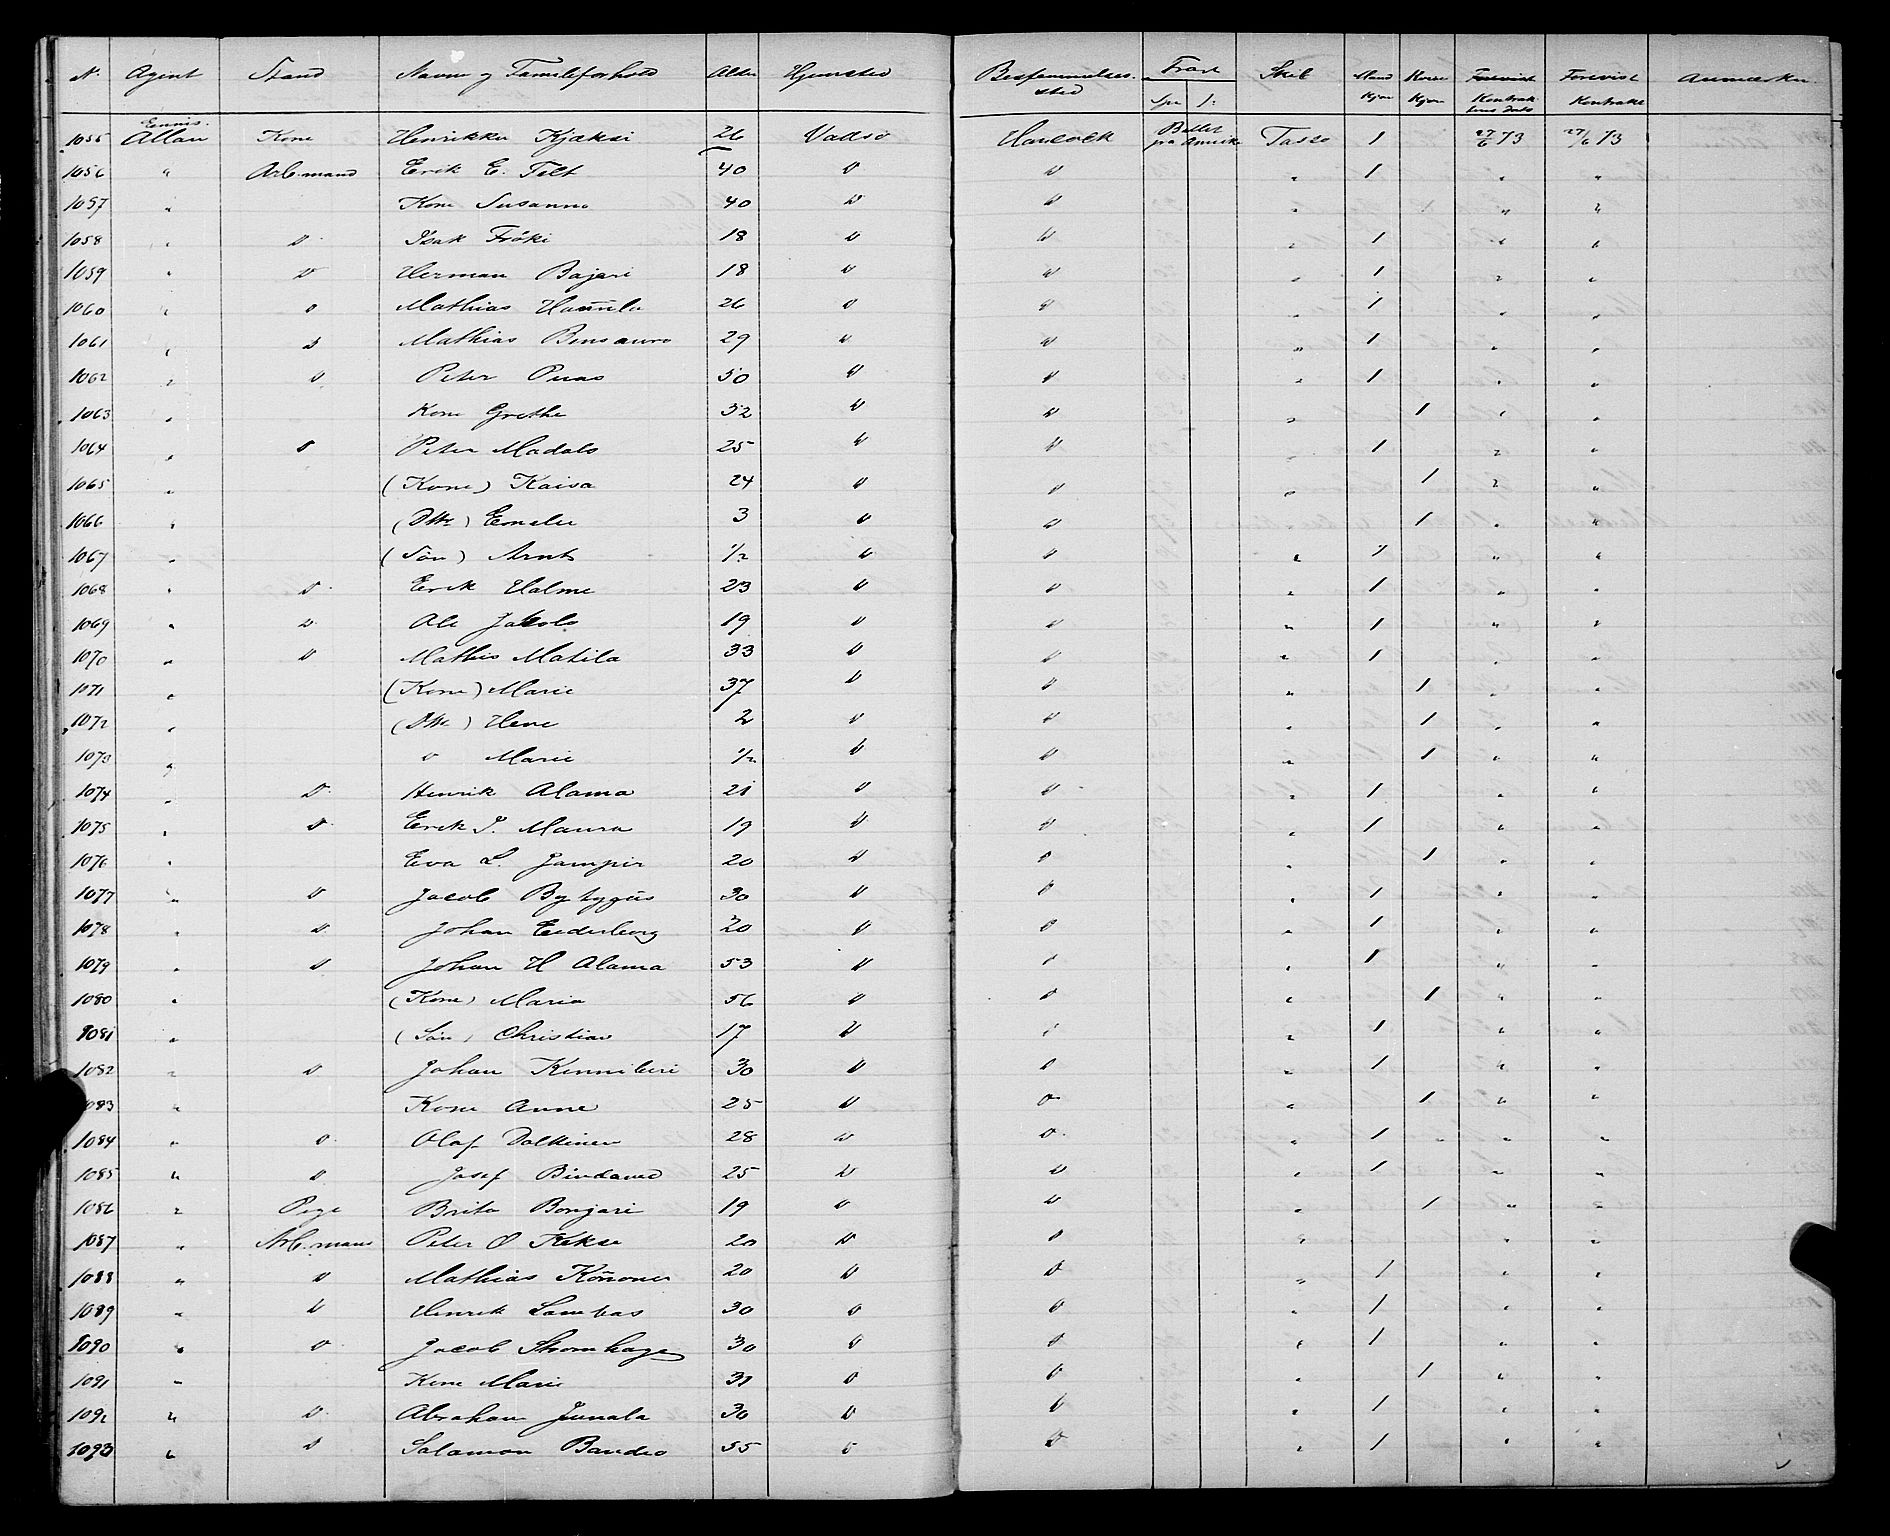 N. Agent Stand Navn og Familieforhold Alder Hjemsted Bestemmelses sted Fragt Spd ß Skib Mand Kjøn Kvin Kjøn Forevist Kontrak tens Dato Forevist Kontrakt Anmærkn.
1055 Allan Kone Henrikke 26 Vadsø Hancock Billet fra Amerika Tasso 1 27/6 73 27/6 73
1056 " Arb.mand Erik E. Felt 40 D D " 1 " "
1057 " Kone Susanna 40 D D " 1 " "
1058 " D Isak Fröki 18 D D " 1 " "
1059 " D Herman Bajari 18 D D " 1 " "
1060 " D Mathias 26 D D " 1 " "
1061 " D Mathias 29 D D " 1 " "
1062 " D Peter Puas 50 D D " 1 " "
1063 " Kone Grethe 52 D D " 1 " "
1064 " D Peter Madals 25 D D " 1 " "
1065 " (Kone) Kaisa 24 D D " 1 " "
1066 " (Dtr) 3 D D " 1 " "
1067 " (Søn) Arnt 1/2 D D " 1 " "
1068 " D Erik Halme 23 D D " 1 " "
1069 " D Ole Jakols 19 D D " 1 " "
1070 " D Mathis Matila 33 D D " 1 " "
1071 " (Kone) Marie 37 D D " 1 " "
1072 " (Dtr) 2 D D " 1 " "
1073 " D Marie 1/2 D D " 1 " "
1074 " D Henrik Alama 21 D D " 1 " "
1075 " D Erik J. Maura 19 D D " 1 " "
1076 " Eva L. 20 D D " 1 " "
1077 " D Jacob 30 D D " 1 " "
1078 " D Johan 20 D D " 1 " "
1079 " D Johan H Alama 53 D D " 1 " "
1080 " (Kone) Maria 56 D D " 1 " "
1081 " (Søn) Christian 17 D D " 1 " "
1082 " D Johan 30 D D " 1 " "
1083 " Kone Anne 25 D D " 1 " "
1084 " D Olaf Dalkinen 28 D D " 1 " " "
1085 " D Josef 25 D D " 1 " "
1086 " Pige Brita Bonjari 19 D D " 1 " "
1087 " Arb.mand Peter O Kekse 20 D D " " "
1088 " D Mathias 20 D D " 1 " "
1089 " D Henrik Lambas 30 D D " 1 " "
1090 " D Jacob Stromhage 30 D D " 1 " "
1091 " Kone Marie 31 D D " 1 " "
1092 " D Abraham Junala 30 D D " 1 " "
1093 " D Salamon 55 D D " 1 " "